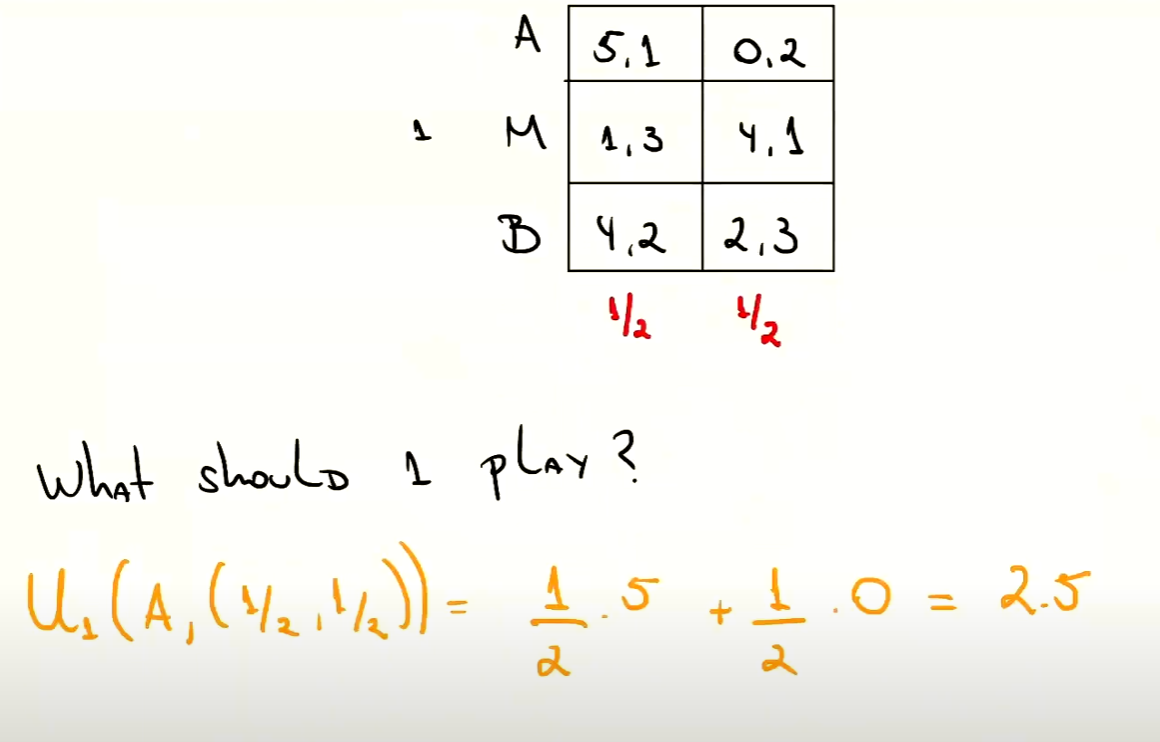 A 5,1 0,2
1 M 1,3 4,1
B 4,2 2,3
1/2 1/2
What should 1 play?
U₁(A,(1/2,1/2)) = 1/2 . 5 + 1/2 . 0 = 2.5